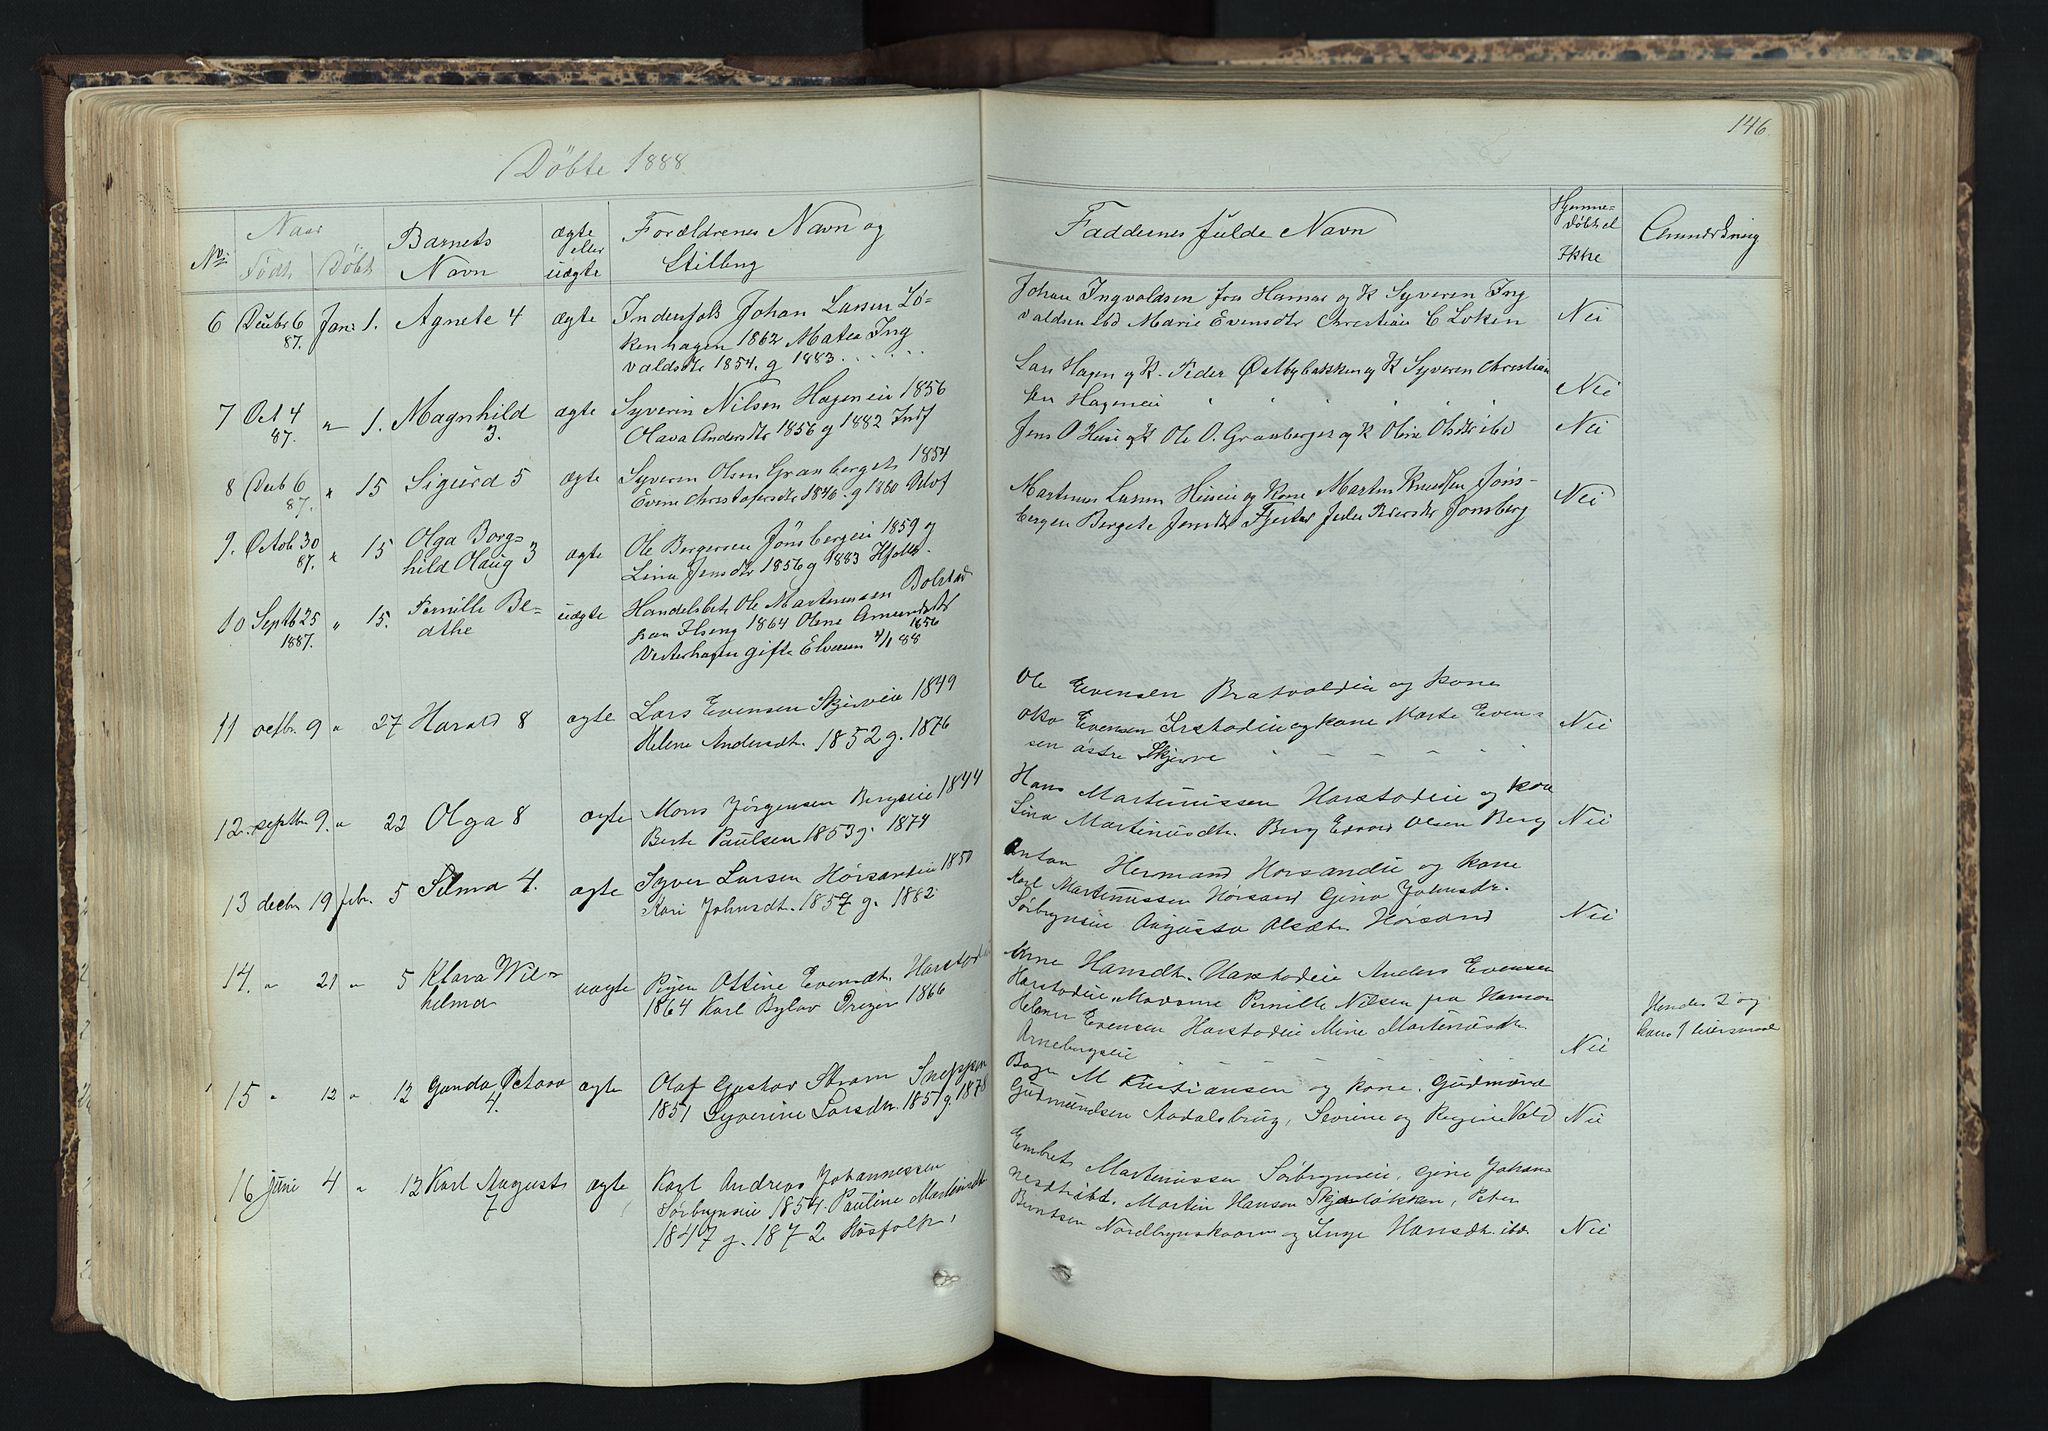 146
Döbte 1888
No.
Naar
Födt
Döbt
Barnets
Navn
ægte
eller
uægte
Forældrenes Navn og
Stilling
Faddernes fulde Navn
Hjemme-
döbt el
Ikke
Anmerkning
6 Decbr 6 87. Jan: 1. Agnete 4 ægte
Inderfolk Johan Larsen Lö-
kenhagen 1862 Matea Ing
valdsdtr 1854. g 1883
Johan Ingvaldsen fra Hamar og K Syveren Ing
valdsen ibd Marie Evensdtr Christian C Löken
Nei
7 Oct 4 87. " 1. Magnhild 3. ægte
Syverin Nilsen Hageneie 1856
Olava Andersdtr 1856 g 1882 Indf
Lars Hagen og K. Peder Östbybakken og K Syveren Christian
sen Hageneie
Nei
8 Decb 6 87. " 15 Sigurd 5 ægte
Syveren Olsen Granberget 1854
Evene Christofersdtr 1846. g 1880
Jens O Huse og K Ole O. Granberget og K Oline Olsdtr ibd
Nei
9. Octob 30 87. " 15 Olga Borg-
hild Olaug 3 ægte
Ole Bergersen Jönsbergeie 1859 og
Lina Jensdtr 1856 g 1883
Martinus Larsen Huseie og Kone Martin Knudsen Jöns-
bergen Bergete Jensdtr Fjestad Pedersdtr Jönsberg
Nei
10 Septb 25 1887. " 15. Pernille Be-
athe uægte
Handelsbet Ole Martinussen Bolstad
fra Ilseng 1864 Olene Amundsdtr 1856
Vesterhagen gifte Elverum 4/1 88
11 octbr. 9 " 27 Harald 8 ægte
Lars Evensen Skjerveie 1849
Helene Andersdt. 1852 g. 1876
Ole Evensen Bratvoldeie og kone
Evensen og kone Marte Even-
sen östre Skjerve
Nei
12. septbr 9. " 22 Olga 8 ægte
Mons Jörgensen Bergseie 1844
Berte Paulsen 1853 g. 1874
Hans Martinussen Harstadeie og kone
Lina Martinusdt. Berg Edvard Olsen Berg
Nei
13 decbr 19 febr. 5 Selma 4. ægte
Syver Larsen Hörsandeie 1850
Kari Johnsdt. 1857 g. 1882
Anton Hermand Horsandeie og kone
Karl Martinussen Hörsand Gina Johnsdtr.
Sörbynseie Augusta Olsdt. Hörsand
Nei
14. " 21 " 5 Klara Wil-
helmd uægte
Pigen Ottine Evensdt. Harstadeie
1864 Karl Bylov Dreyer 1866
Anne Hansdt. Harstadeie Anders Evensen
Harstadeie, Madame Pernille Nilsen fra Hamar
Helmer Evensen Harstadeie Mine Martinusdtr
Arnebergseie
Nei
Hendes 2 og
hans 1 leiersmaal
15 " 12 " 12 Gunda Octava 4. ægte
Olaf Gustav Ström Sneppen
1851 Syverine Larsdtr. 1851 g. 1878
M Kristiansen og kone. Gudmund
Gudmundsen Aadalsbrug, Severine og Regine Vold
Nei
16 juni 4 " 12 Karl August 7 ægte
Karl Andreas Johannessen
Sörbynseie 1854. Pauline Martinusdtr
1847 g. 1872 Husfolk
Embret Martinussen Sörbynseie, Gine Johan-
nesdt ibd. Martin Hansen Skjerlökken, Peter
Berntsen Nordbynskoven og Inge Hansdt. ibd.
Nei